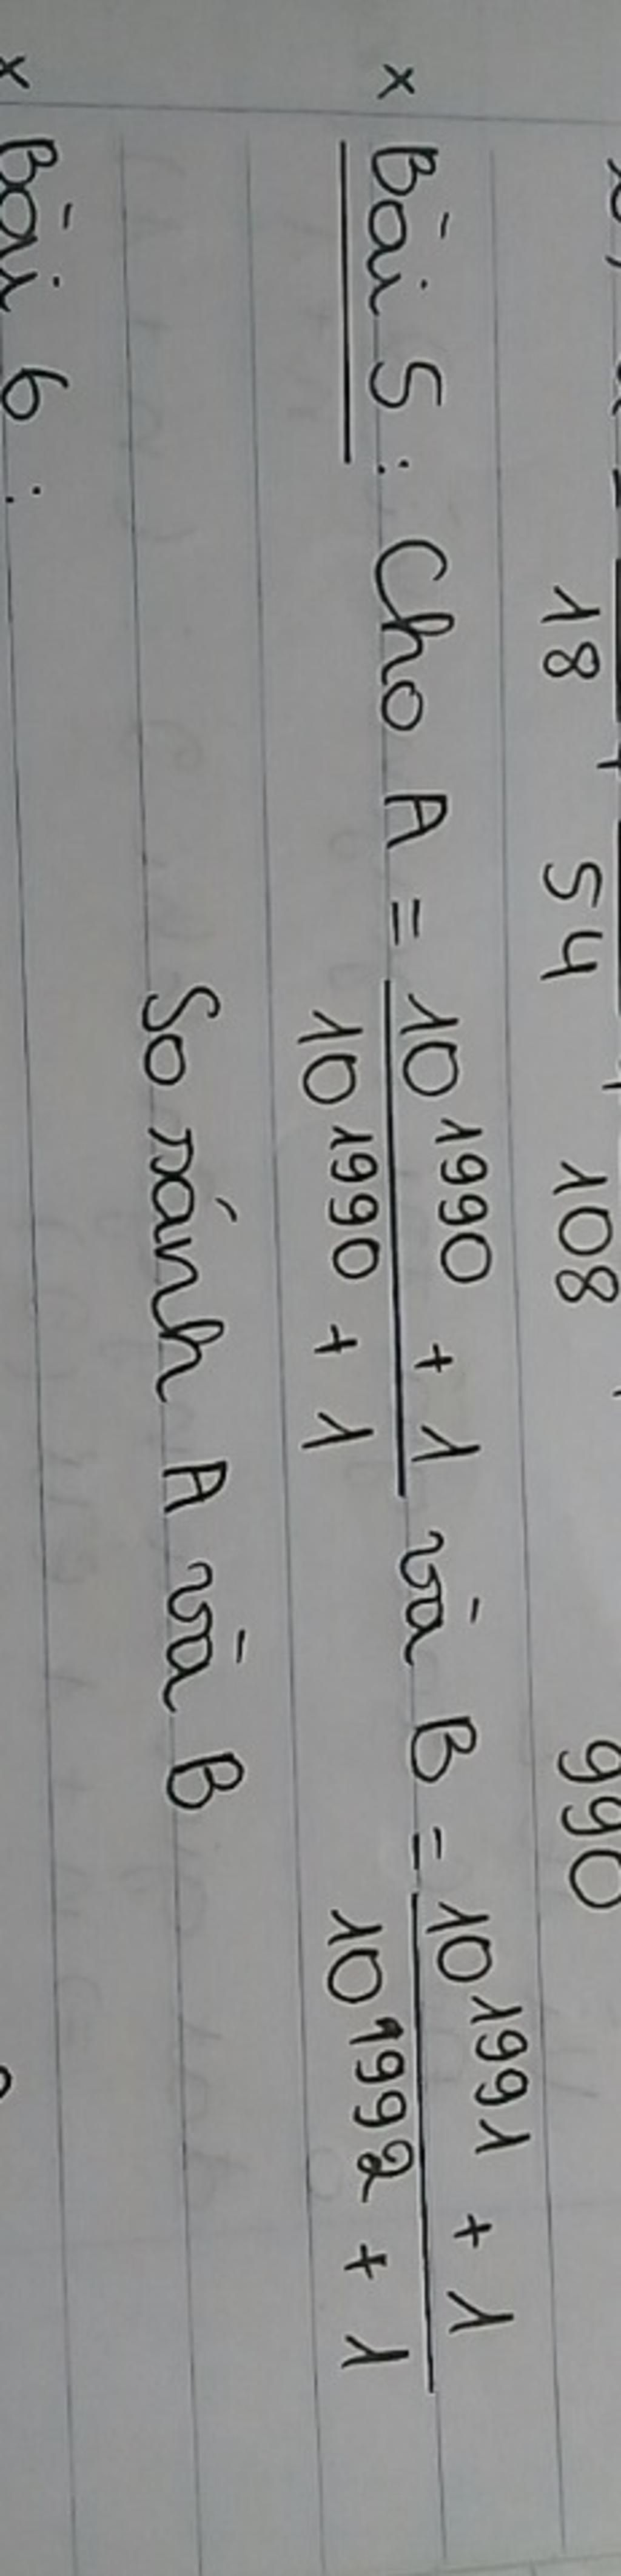 18 54 108 990
x Bài 5 : Cho A = 10^1990 + 1 / 10^1990 + 1 và B = 10^1991 + 1 / 10^1992 + 1
So sánh A và B
x Bài 6 :